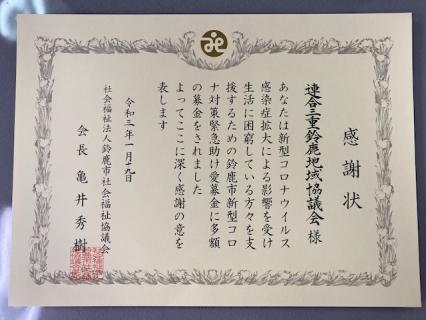 感謝状
連合三重鈴鹿地域協議会様
あなたは新型コロナウイルス
感染症拡大による影響を受け
生活に困窮している方々を支
援するための鈴鹿市新型コロ
ナ対策緊急助け愛募金に多額
の募金をされました
よってここに深く感謝の意を
表します
令和三年一月十九日
社会福祉法人鈴鹿市社会福祉協議会
会長 亀井秀樹